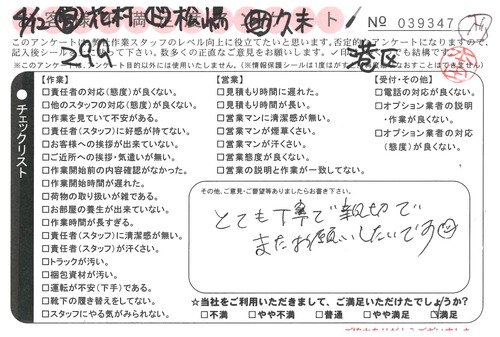 9/12 花村 松嶋 久末
No 039347
299
港区
このアンケートは弊社作業スタッフのレベル向上に役立てたいと思います。否定的なアンケートになりますので、
※このアンケートは、アンケート目的以外には使用いたしません。
チェックリスト
【作業】
□責任者の対応(態度)が良くない。
□他のスタッフの対応(態度)が良くない。
□作業を見ていて不安がある。
□責任者(スタッフ)に好感が持てない。
□お客様への挨拶が出来ていない。
□ご近所への挨拶・気遣いが無い。
□作業開始前の内容確認がなかった。
□作業開始時間が遅れた。
□荷物の取り扱いが雑である。
□お部屋の養生が出来ていない。
□作業時間が長すぎる。
□責任者(スタッフ)に清潔感が無い。
□責任者(スタッフ)が汗くさい。
□トラックが汚い。
□梱包資材が汚い。
□運転が不安(下手)である。
□靴下の履き替えをしてない。
□スタッフにやる気がみられない。
【営業】
□見積もり時間に遅れた。
□見積もり時間が長い。
□営業マンに清潔感が無い。
□営業マンが煙草くさい。
□営業マンが汗くさい。
□営業態度が良くない。
□営業の説明と作業が一致してない。
【受付・その他】
□電話の対応が良くない。
□オプション業者の説明
・作業が良くない。
□オプション業者の対応
(態度)が良くない。
その他、ご意見・ご要望等ありましたらお書き下さい。
とても丁寧で親切で
またお願いしたいです
☆当社をご利用いただきまして、ご満足いただけたでしょうか?
□不満 □やや不満 □普通 □やや満足 ☑満足